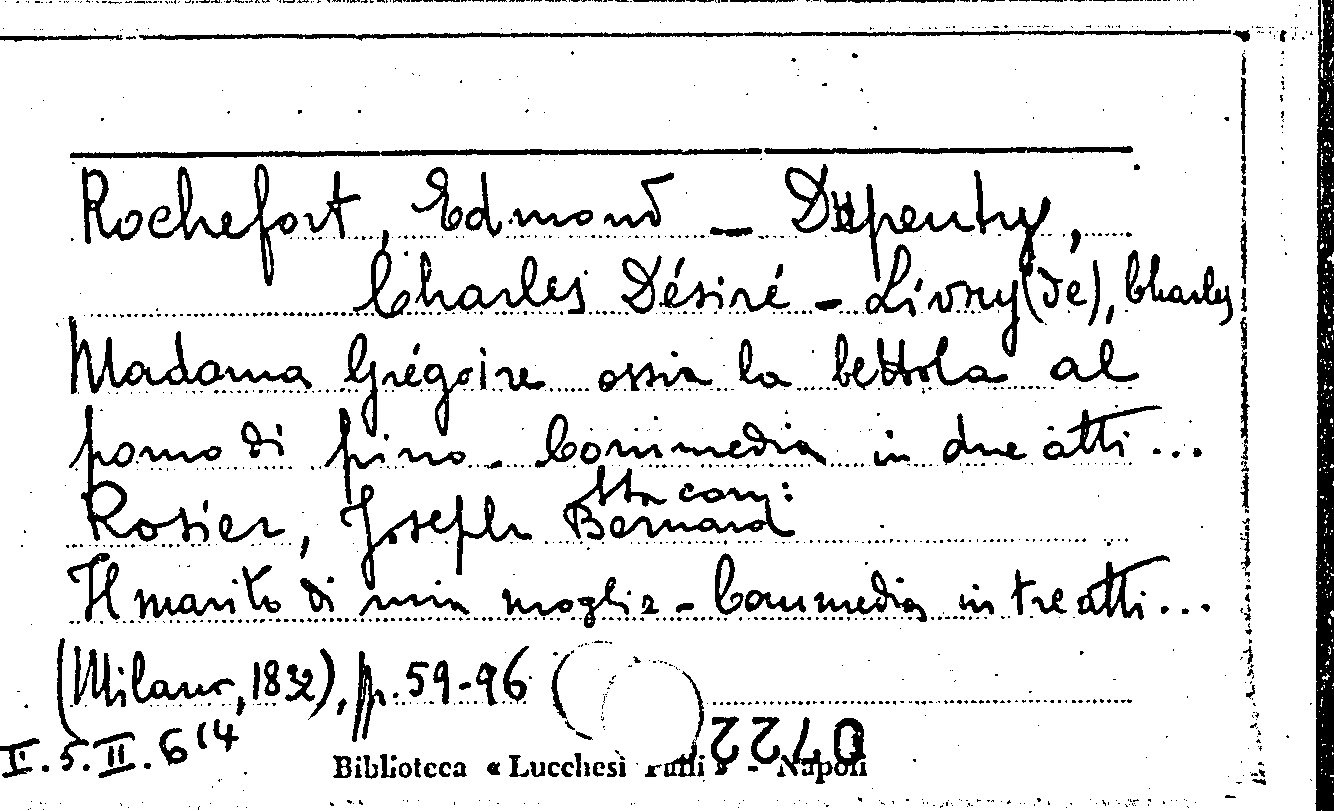 Rochefort, Edmond - Dupeuty,
Charles Désiré - Livry (de), Charles
Madama Grégoire ossia la bettola al
pomo di pino. Commedia in due atti...
Sta con:
Rosier, Joseph Bernard
Il marito di mia moglie - Commedia in tre atti...
(Milano, 1832), p. 59-96
I.5.II.6(4
0722
Biblioteca « Lucchesi Palli » - Napoli